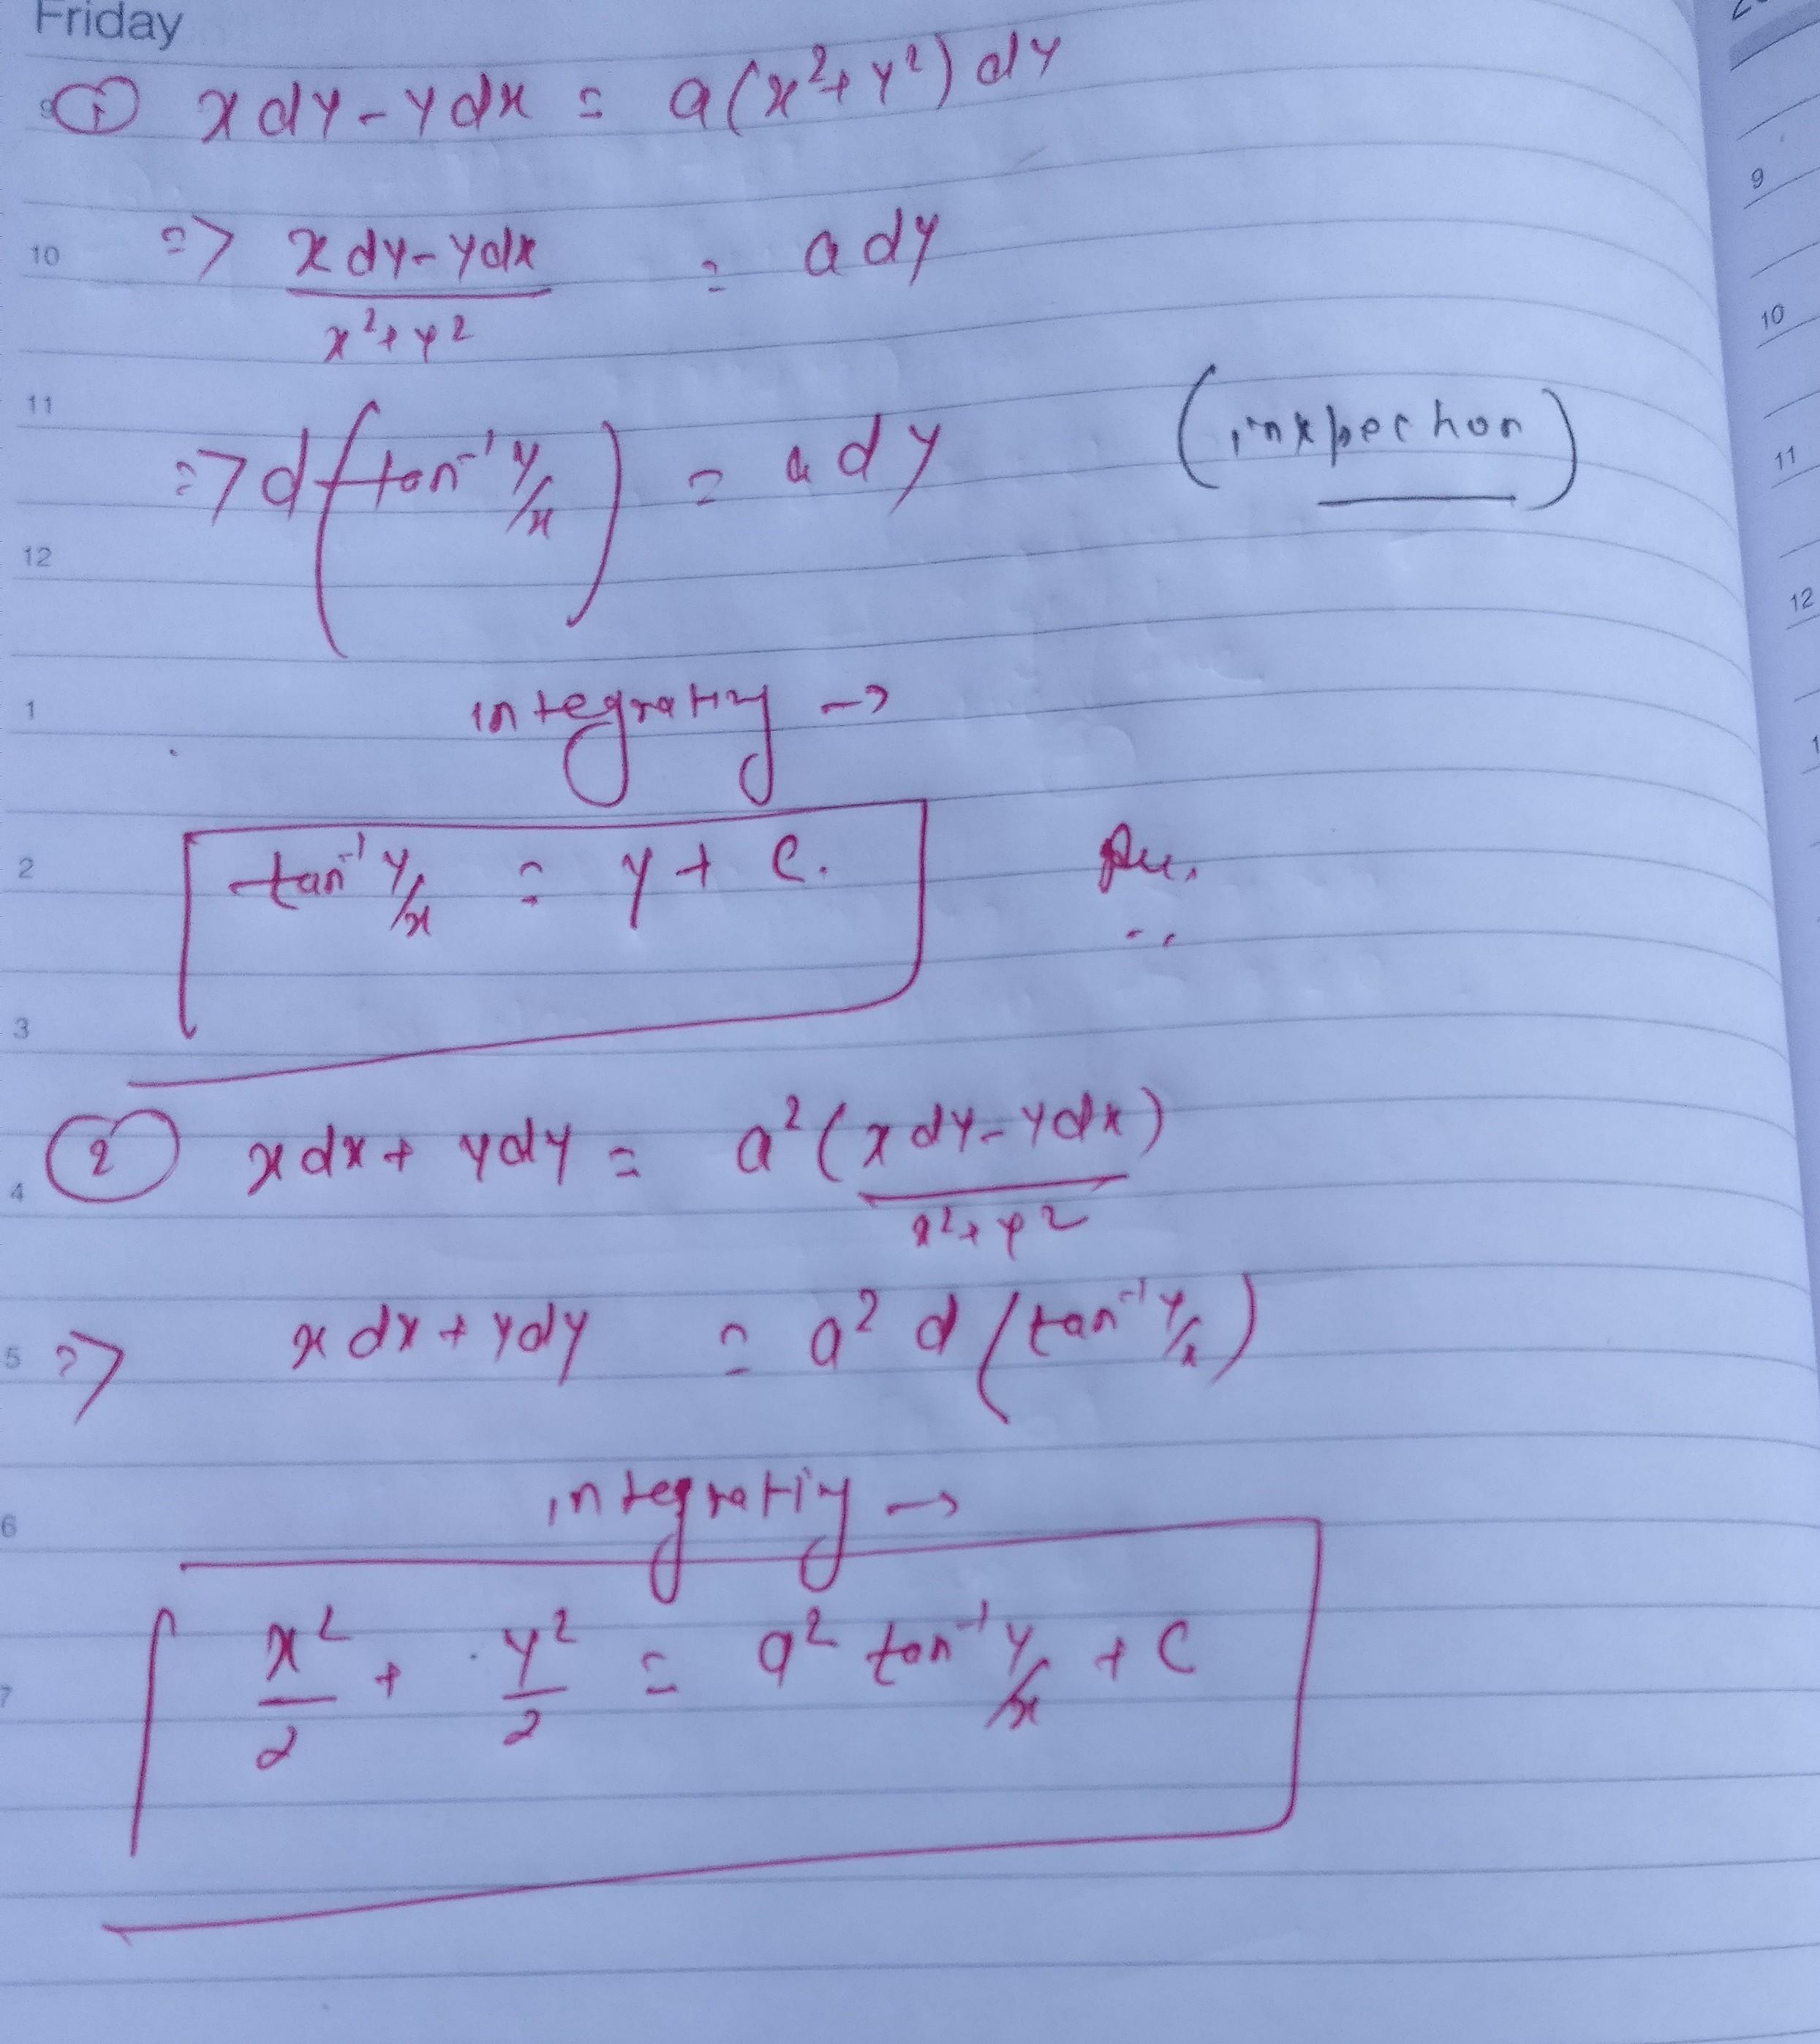 Friday
① x dy - y dx = a(x² + y²) dy
=> x dy - y dx / x² + y² = a dy
=> d(tan⁻¹ y/x) = a dy (inspection)
integrating →
tan⁻¹ y/x = y + c.
② x dx + y dy = a² (x dy - y dx) / x² + y²
=> x dx + y dy = a² d(tan⁻¹ y/x)
integrating →
x²/2 + y²/2 = a² tan⁻¹ y/x + C
9
10
11
12
1
2
3
4
5
6
7
9
10
11
12
1